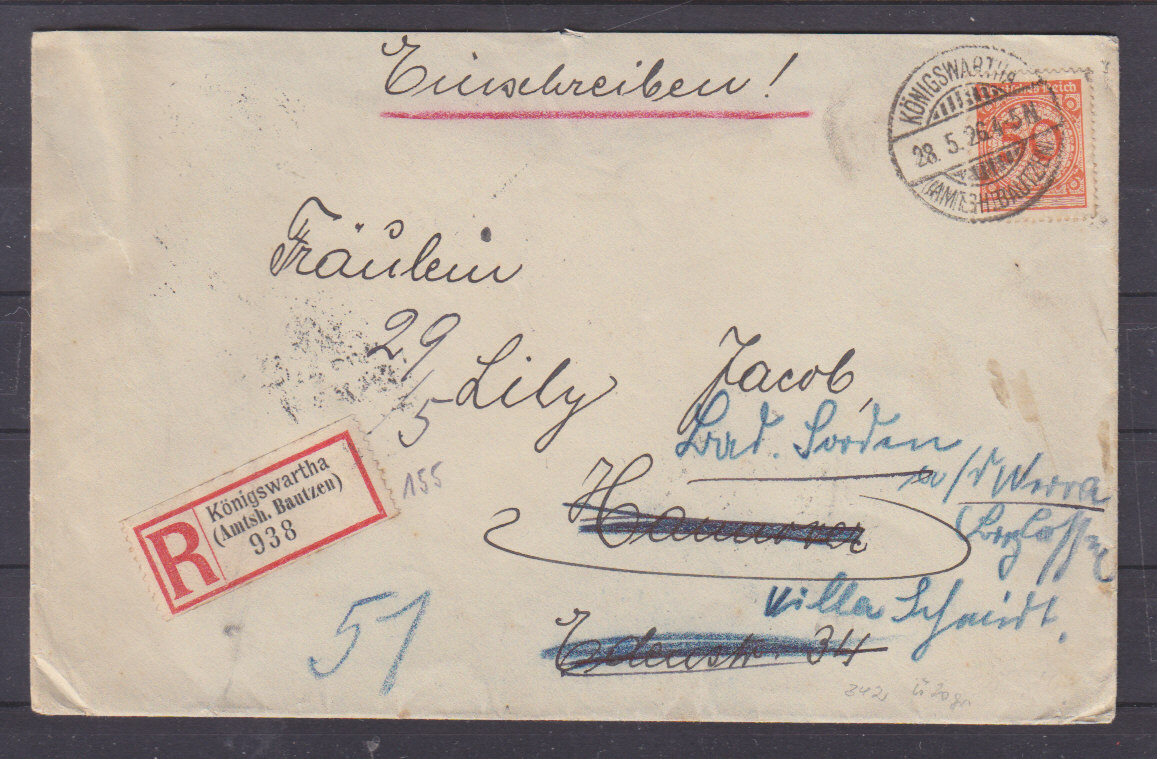 Einschreiben!
KÖNIGSWARTHA
28. 5. 26. 4-5N
(AMTSH. BAUTZEN)
Deutsches Reich
50
Fräulein
29
5
Lily Jacob,
Bad. Sooden
a/d Werra
155
R
Königswartha
(Amtsh. Bautzen)
938
Hannover
Villa Schmidt.
51
Edenstr. 34
242 ü 20 gr